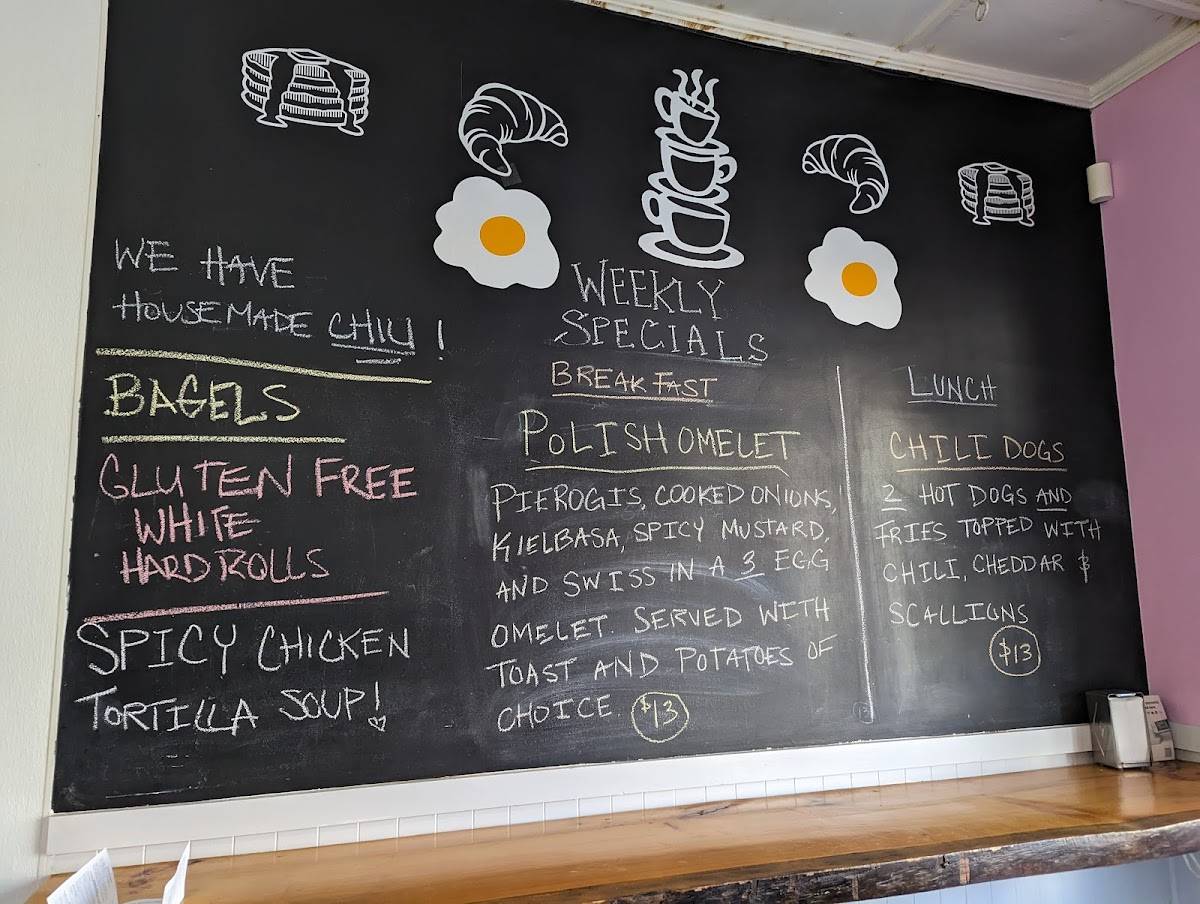 WE HAVE
HOUSEMADE CHILI!
BAGELS
GLUTEN FREE
WHITE
HARD ROLLS
SPICY CHICKEN
TORTILLA SOUP!
WEEKLY
SPECIALS
BREAKFAST
POLISH OMELET
PIEROGIS, COOKED ONIONS,
KIELBASA, SPICY MUSTARD,
AND SWISS IN A 3 EGG
OMELET. SERVED WITH
TOAST AND POTATOES OF
CHOICE. $13
LUNCH
CHILI DOGS
2 HOT DOGS AND
FRIES TOPPED WITH
CHILI, CHEDDAR &
SCALLIONS
$13